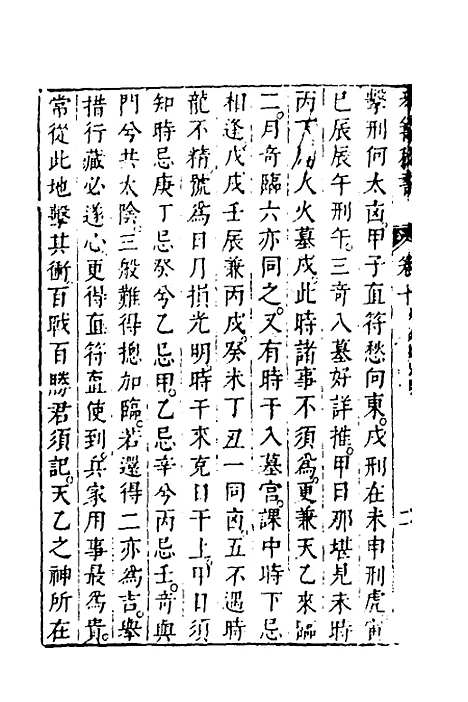 擊刑何太凶。甲子直符愁向東。戌刑在未申刑虎寅
巳辰辰午刑午。三奇入墓好詳推。甲日那堪見未時
丙火火墓戌。此時諸事不須爲。更兼天乙來臨
二。月奇臨六亦同之。又有時干入墓宮。課中時下忌
相逢戊戌壬辰兼丙戌。癸未丁丑一同凶。五不遇時
龍不精號爲日月損光明。時干來克日干上。甲日須
知時忌庚丁忌癸兮乙忌甲。乙忌辛兮丙忌壬。奇與
門兮共太陰三般難得摠加臨。若還得二亦爲吉。舉
措行藏必遂心更得直符直使到。兵家用事最爲貴。
常從此地擊其衝。百戰百勝君須記。天乙之神所在